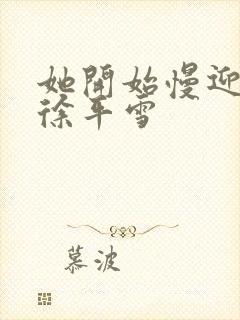 她開始慢迎
徐平雪
慕波